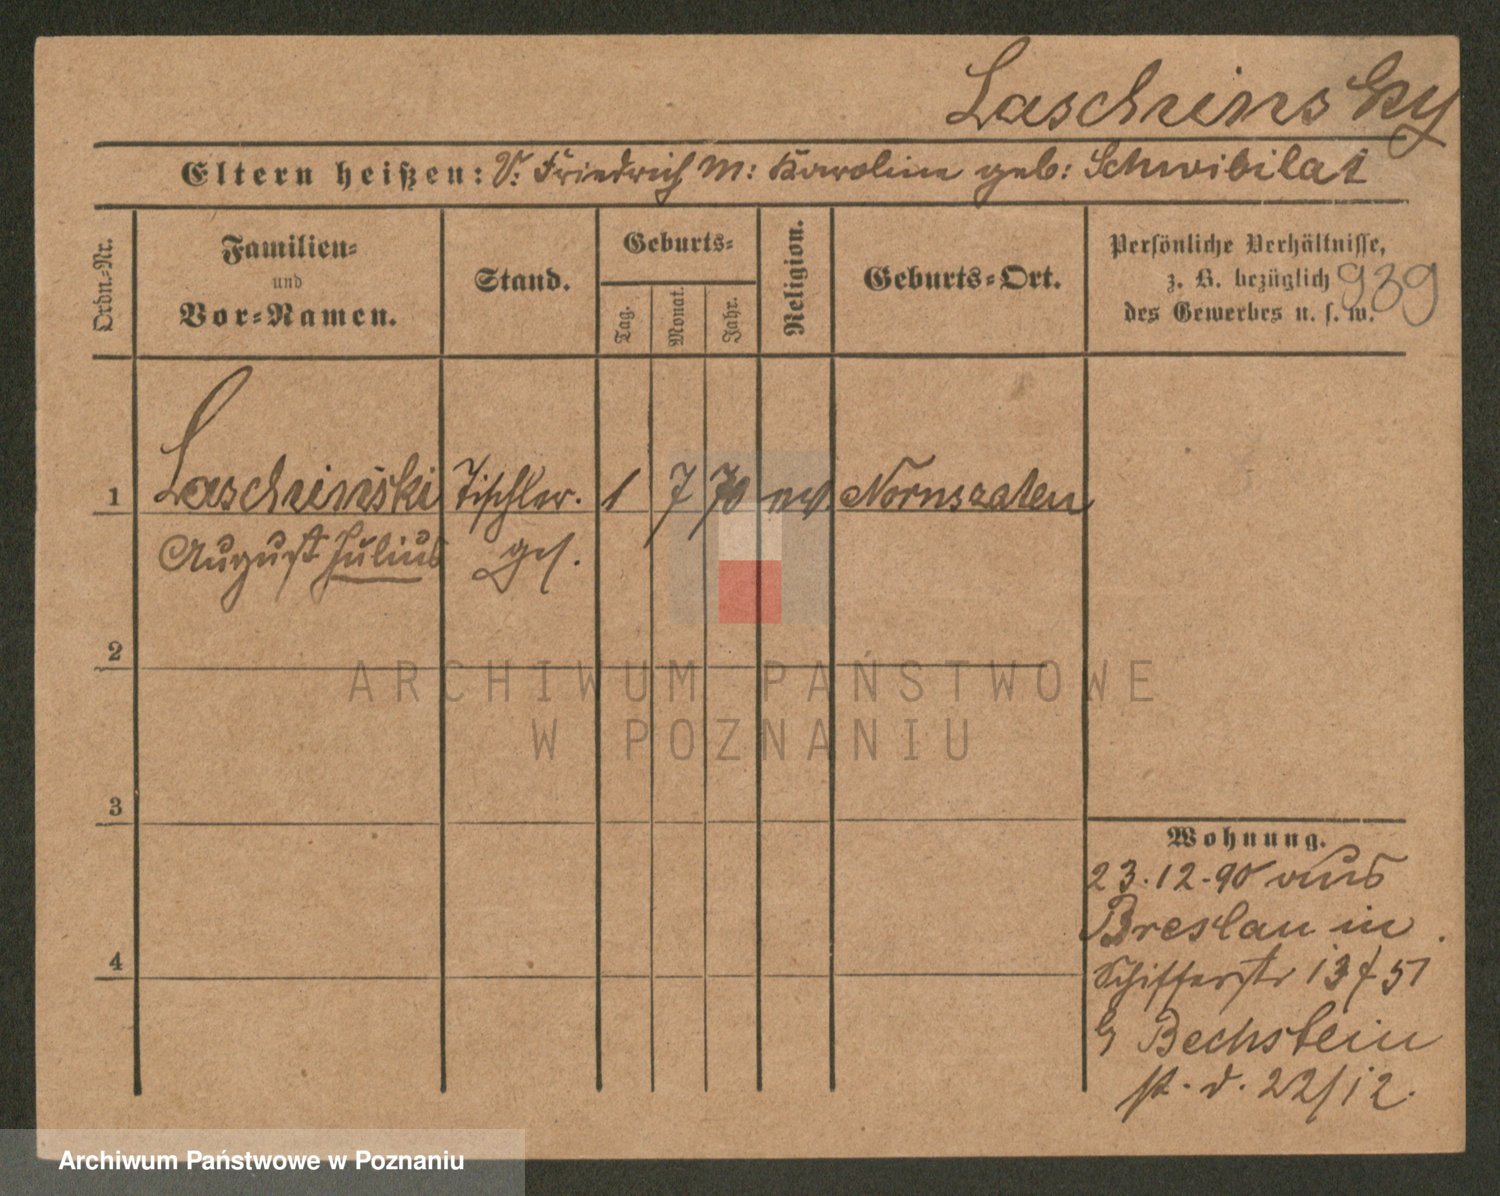 Laschinsky
Eltern heißen: V: Friedrich M: Karoline geb: Schwibilat
Ordn.-Nr.
Familien-
und
Vor-Namen.
Stand.
Geburts-
Tag.
Monat.
Jahr.
Religion.
Geburts-Ort.
Persönliche Verhältnisse,
z. B. bezüglich
des Gewerbes u. s. w.
939
1 Laschinski Tischler. 1 7 70 ev. Nornszaten
August Julius ges.
2
3
4
Wohnung.
23.12.90 aus
Breslau in
Schifferstr 13
b Bechstein
st. d. 22/12.
ARCHIWUM PAŃSTWOWE
W POZNANIU
Archiwum Państwowe w Poznaniu